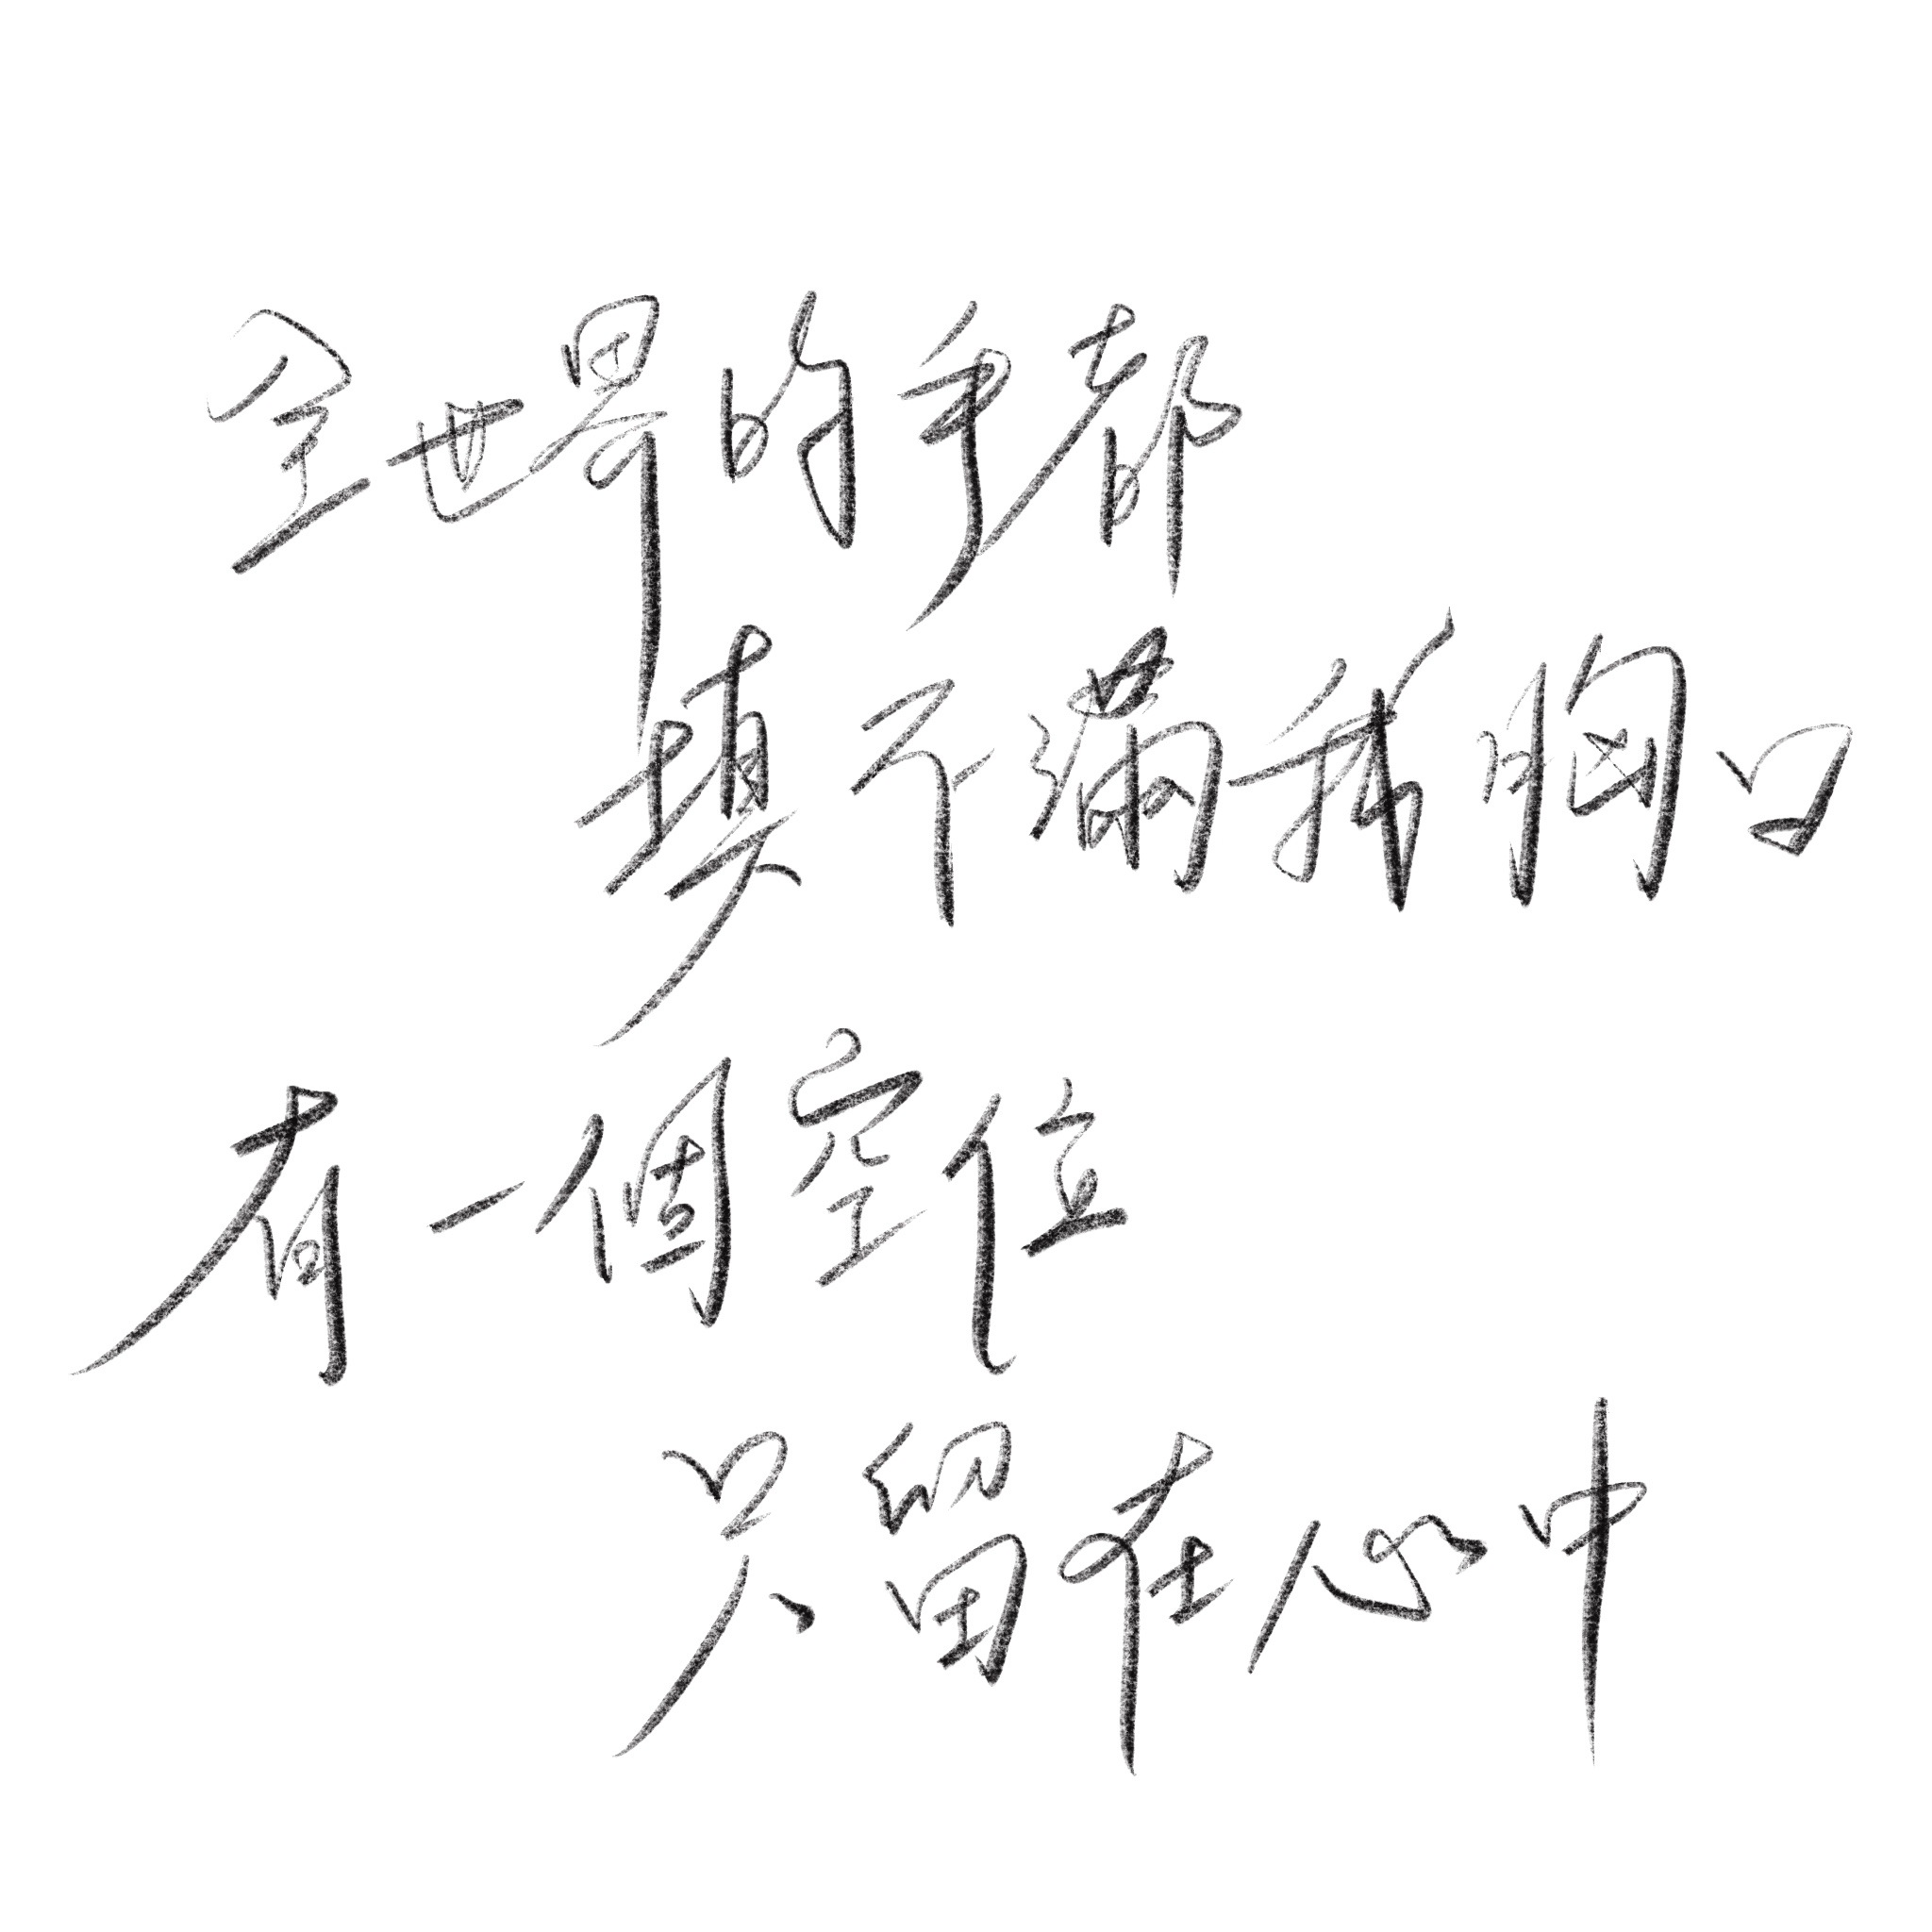 全世界的手都
填不滿我胸口
有一個空位
只留在心中